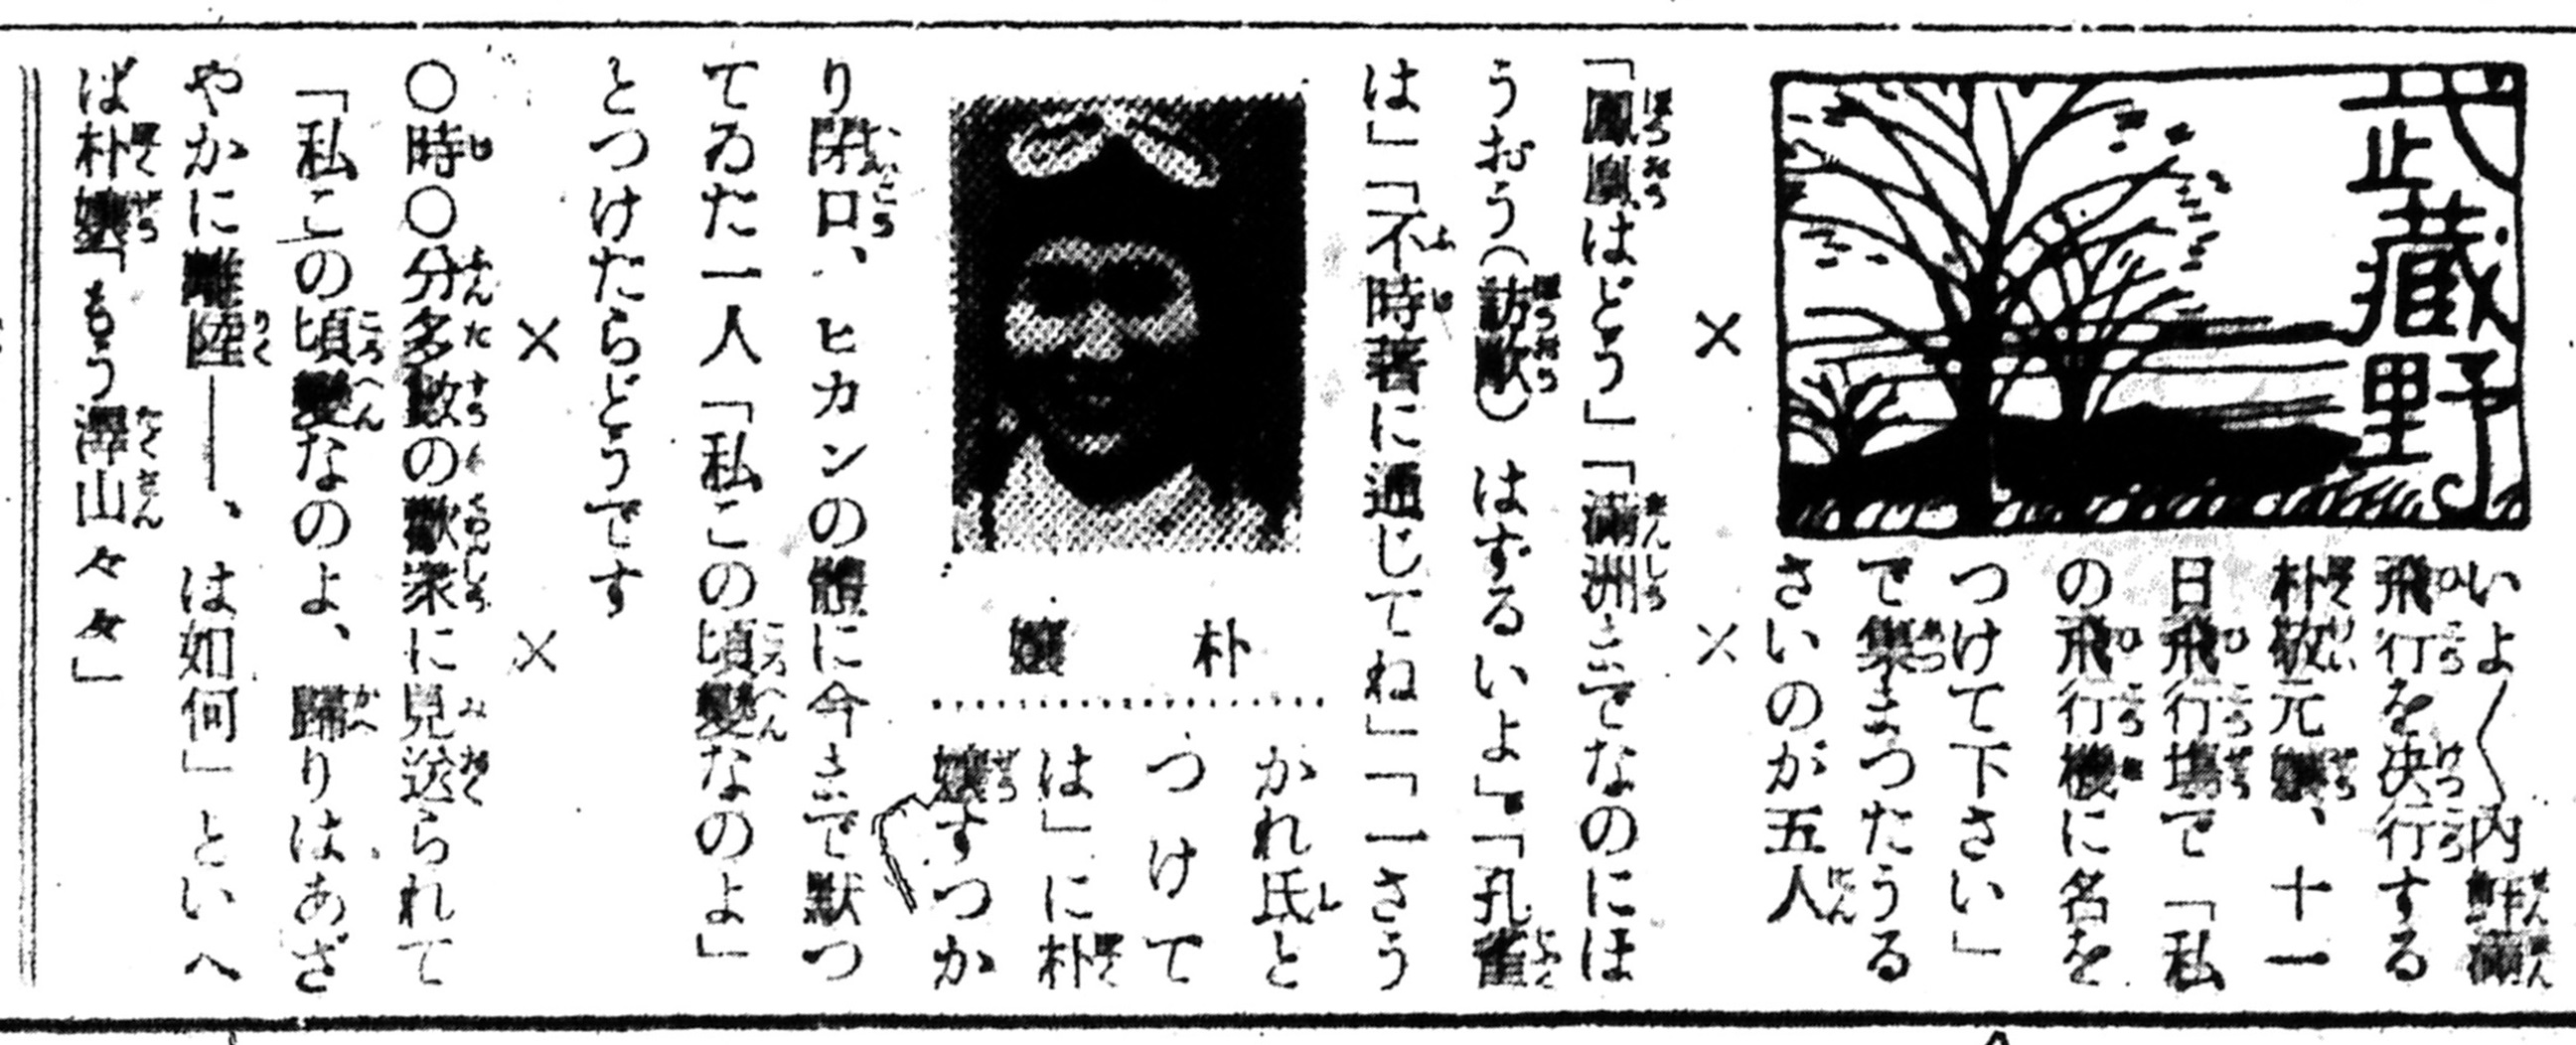 武蔵野
いよ〱内鮮満
飛行を決行する
朴敬元嬢、十一
日飛行場で「私
の飛行機に名を
つけて下さい」
で集まつたうる
さいのが五人
×　×
「鳳凰はどう」「満洲までなのにほ
うおう（訪欧）はずるいよ」「孔雀
は」「不時著に通じてね」「一さう
かれ氏と
つけて
は」に朴
嬢すつか
朴嬢
り閉口、ヒカンの態に今まで黙つ
てゐた一人「私この頃変なのよ」
とつけたらどうです
×　×
〇時〇分多数の歓衆に見送られて
「私この頃変なのよ、踊りはあざ
やかに離陸――、は如何」といへ
ば朴嬢「もう沢山々々々」